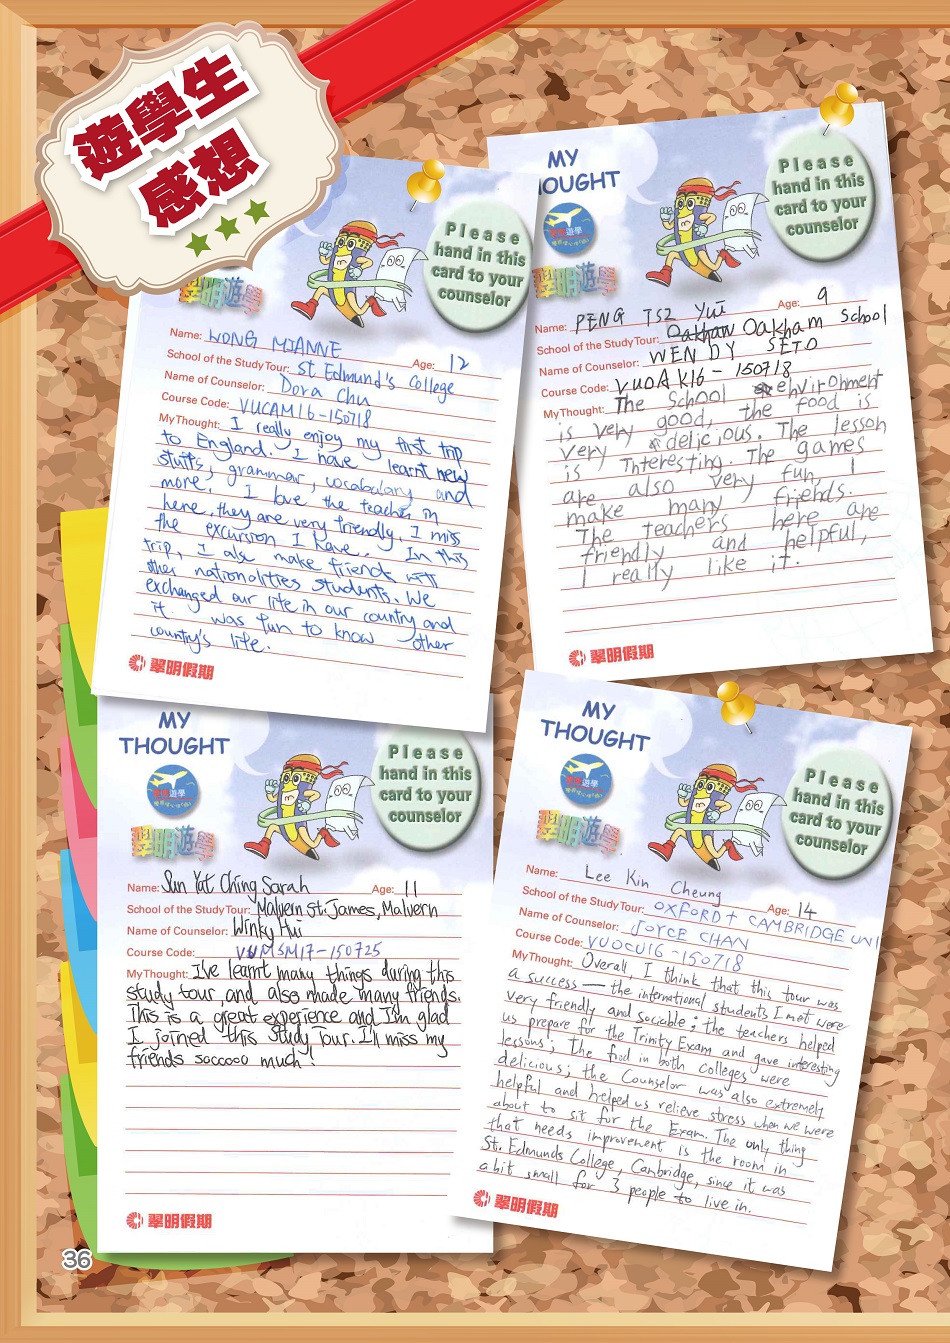 遊學生
感想
Please
hand in this
card to your
counselor
翠明遊學
Name: WONG MIANNE
School of the Study Tour: St Edmund's College Age: 12
Name of Counselor: Dora Chu
Course Code: VUCAM16-150718
My Thought: I really enjoy my first trip
to England. I have learnt new
stuffs, grammar, vocabulary and
more. I love the teacher in
here, they are very friendly. I miss
the excursion I have. In this
trip, I also make friends with
other nationalities students. We
exchanged our life in our country and
it was fun to know other
country's life.
翠明假期
MY
THOUGHT
Please
hand in this
card to your
counselor
翠明遊學
Name: PENG TSZ YUI Age: 9
School of the Study Tour: Oakham School
Name of Counselor: WENDY SETO
Course Code: VUOAK16-150718
My Thought: The School environment
is very good, the food is
very delicious. The lesson
is interesting. The games
are also very fun, I
make many friends.
The teachers here are
friendly and helpful,
I really like it.
翠明假期
MY
THOUGHT
Please
hand in this
card to your
counselor
翠明遊學
Name: Sun Yat Ching Sarah Age: 11
School of the Study Tour: Malvern St. James, Malvern
Name of Counselor: Winky Hui
Course Code: VUMSM17-150725
My Thought: I've learnt many things during this
study tour, and also made many friends.
This is a great experience and I'm glad
I joined this Study Tour. I'll miss my
friends soooooo much!
翠明假期
MY
THOUGHT
Please
hand in this
card to your
counselor
翠明遊學
Name: Lee Kin Cheung Age: 14
School of the Study Tour: OXFORD + CAMBRIDGE UNI
Name of Counselor: JOYCE CHAN
Course Code: VUOCU16-150718
My Thought: Overall, I think that this tour was
a success — the international students I met were
very friendly and sociable; the teachers helped
us prepare for the Trinity Exam and gave interesting
lessons; the food in both colleges were
delicious; the Counselor was also extremely
helpful and helped us relieve stress when we were
about to sit for the Exam. The only thing
that needs improvement is the room in
St. Edmunds College, Cambridge, since it was
a bit small for 3 people to live in.
翠明假期
36